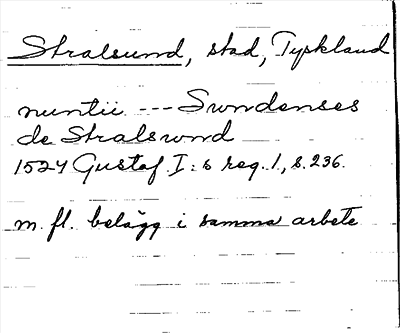 Stralsund, stad, Tyskland
nuntii --- Sundenses
de Stralswnd
1524 Gustaf I:s reg. 1, s. 236.
m. fl. belägg i samma arbete